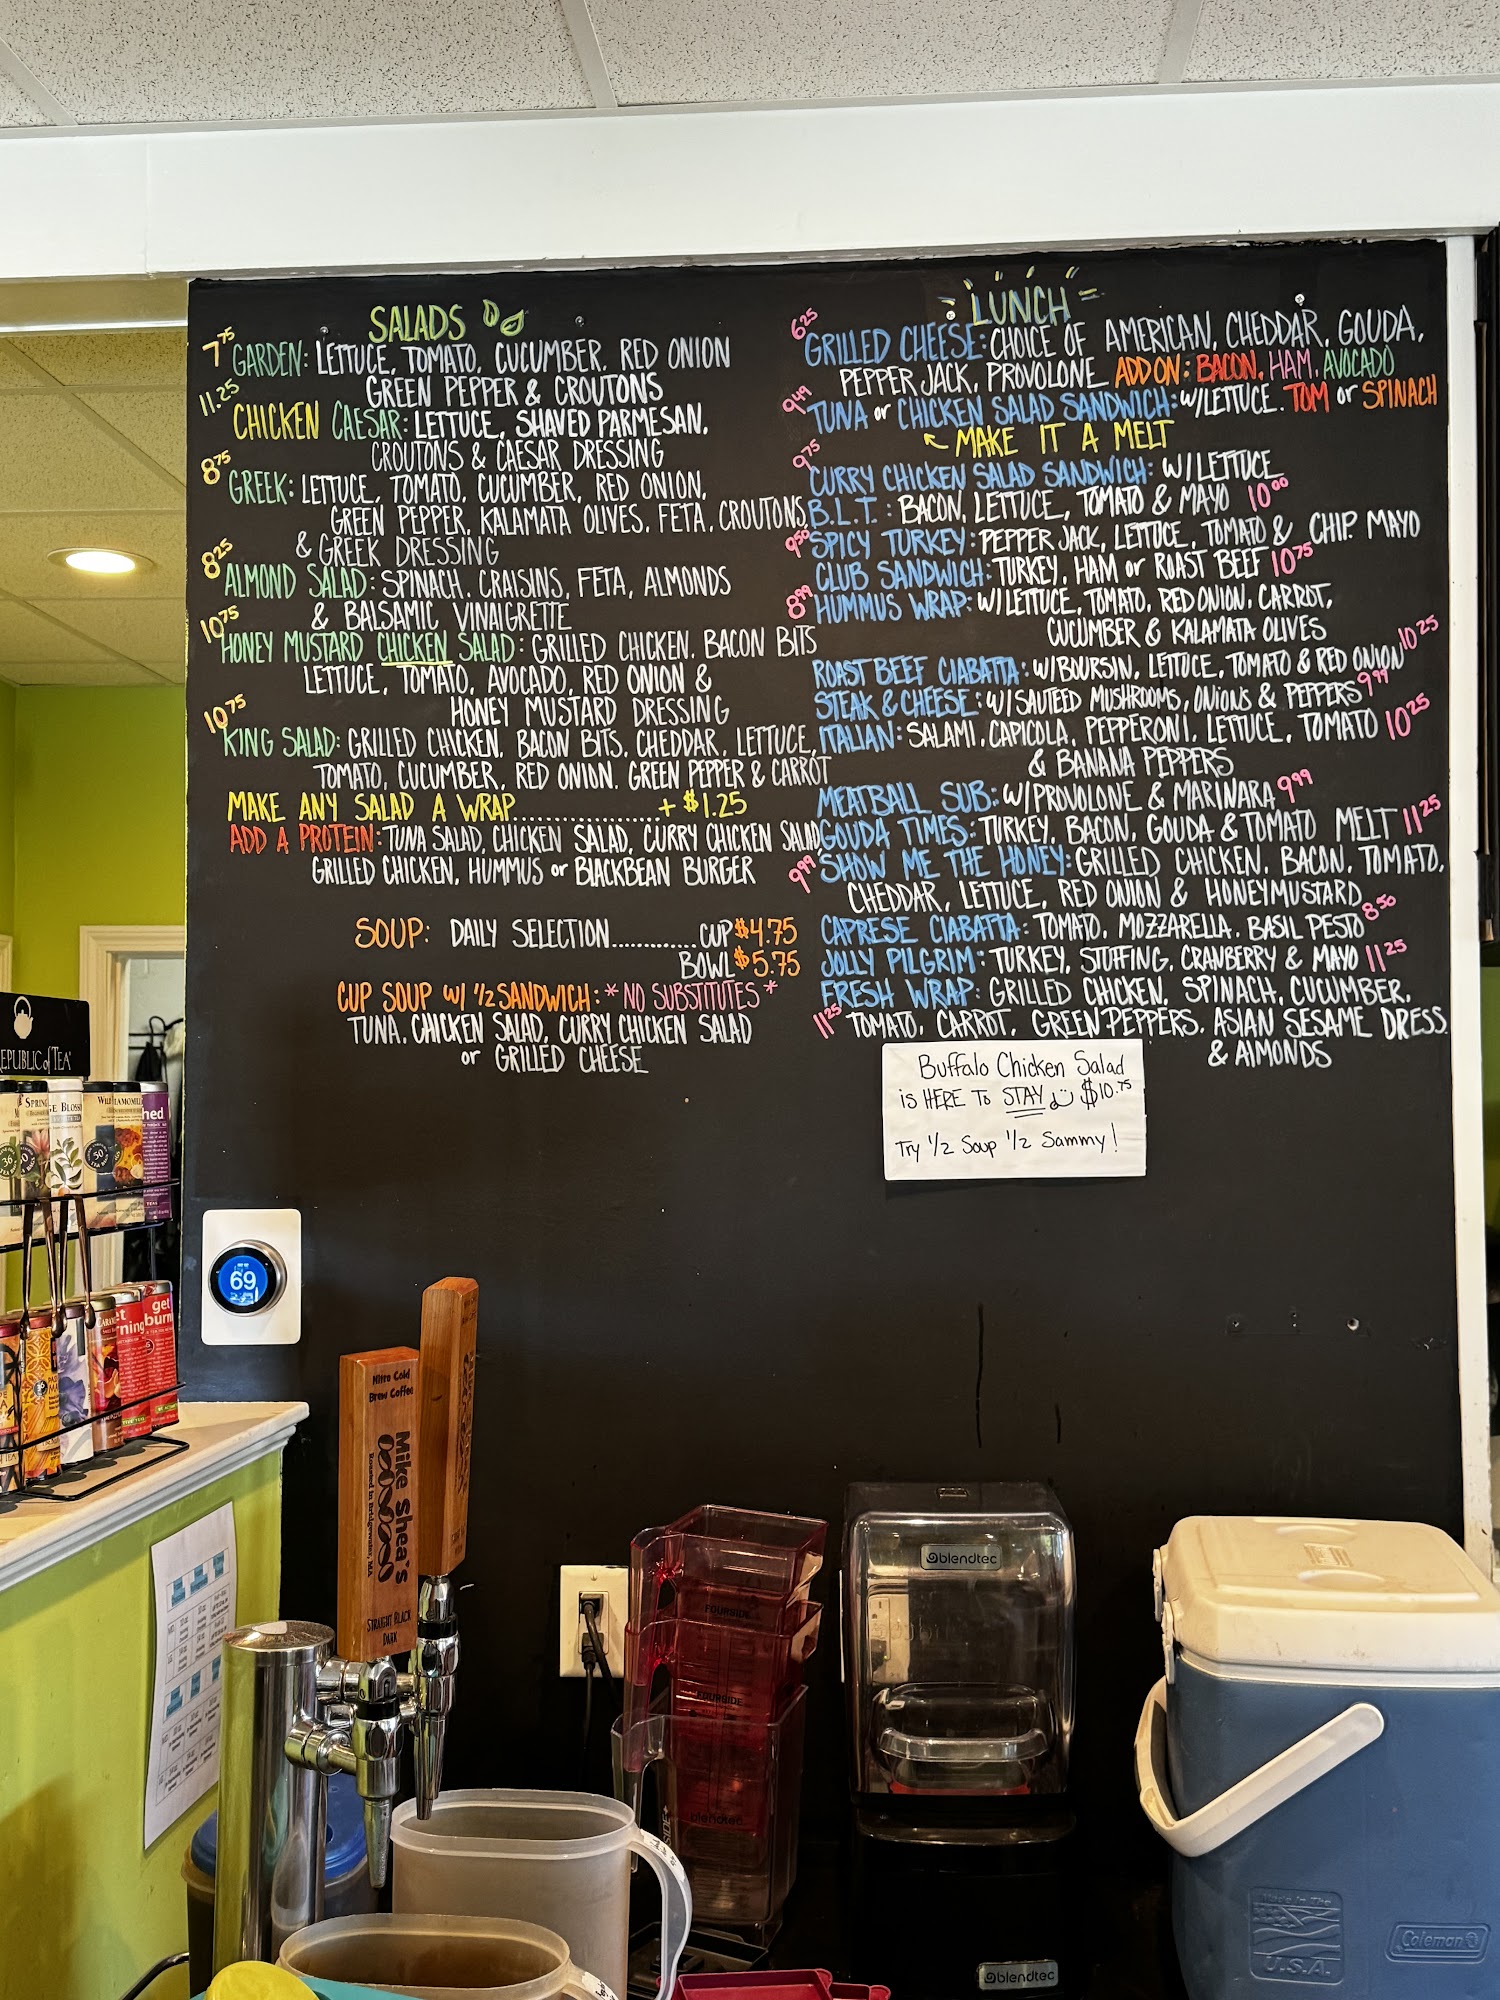 SALADS
7.75
GARDEN: LETTUCE, TOMATO, CUCUMBER, RED ONION
GREEN PEPPER & CROUTONS
11.25
CHICKEN CAESAR: LETTUCE, SHAVED PARMESAN,
CROUTONS & CAESAR DRESSING
8.75
GREEK: LETTUCE, TOMATO, CUCUMBER, RED ONION,
GREEN PEPPER, KALAMATA OLIVES, FETA, CROUTONS,
& GREEK DRESSING
8.25
ALMOND SALAD: SPINACH, CRAISINS, FETA, ALMONDS
& BALSAMIC VINAIGRETTE
10.75
HONEY MUSTARD CHICKEN SALAD: GRILLED CHICKEN, BACON BITS
LETTUCE, TOMATO, AVOCADO, RED ONION &
HONEY MUSTARD DRESSING
10.75
KING SALAD: GRILLED CHICKEN, BACON BITS, CHEDDAR, LETTUCE,
TOMATO, CUCUMBER, RED ONION, GREEN PEPPER & CARROT
MAKE ANY SALAD A WRAP.....................+ $1.25
ADD A PROTEIN: TUNA SALAD, CHICKEN SALAD, CURRY CHICKEN SALAD,
GRILLED CHICKEN, HUMMUS or BLACKBEAN BURGER
SOUP: DAILY SELECTION.............CUP $4.75
BOWL $5.75
CUP SOUP W/ 1/2 SANDWICH: *NO SUBSTITUTES*
TUNA, CHICKEN SALAD, CURRY CHICKEN SALAD
or GRILLED CHEESE
LUNCH
6.25
GRILLED CHEESE: CHOICE OF AMERICAN, CHEDDAR, GOUDA,
PEPPER JACK, PROVOLONE ADD ON: BACON, HAM, AVOCADO
9.49
TUNA or CHICKEN SALAD SANDWICH: W/LETTUCE, TOM or SPINACH
MAKE IT A MELT
9.75
CURRY CHICKEN SALAD SANDWICH: W/LETTUCE
B.L.T.: BACON, LETTUCE, TOMATO & MAYO 10.00
9.50
SPICY TURKEY: PEPPER JACK, LETTUCE, TOMATO & CHIP. MAYO
CLUB SANDWICH: TURKEY, HAM or ROAST BEEF 10.75
8.99
HUMMUS WRAP: W/LETTUCE, TOMATO, RED ONION, CARROT,
CUCUMBER & KALAMATA OLIVES
ROAST BEEF CIABATTA: W/BOURSIN, LETTUCE, TOMATO & RED ONION 10.25
STEAK & CHEESE: W/SAUTEED MUSHROOMS, ONIONS & PEPPERS 9.99
ITALIAN: SALAMI, CAPICOLA, PEPPERONI, LETTUCE, TOMATO 10.25
& BANANA PEPPERS
MEATBALL SUB: W/PROVOLONE & MARINARA 9.99
GOUDA TIMES: TURKEY, BACON, GOUDA & TOMATO MELT 11.25
9.99
SHOW ME THE HONEY: GRILLED CHICKEN, BACON, TOMATO,
CHEDDAR, LETTUCE, RED ONION & HONEYMUSTARD
CAPRESE CIABATTA: TOMATO, MOZZARELLA, BASIL PESTO 8.50
JOLLY PILGRIM: TURKEY, STUFFING, CRANBERRY & MAYO 11.25
FRESH WRAP: GRILLED CHICKEN, SPINACH, CUCUMBER,
11.25 TOMATO, CARROT, GREEN PEPPERS, ASIAN SESAME DRESS.
& ALMONDS
Buffalo Chicken Salad
is HERE To STAY $10.75
Try 1/2 Soup 1/2 Sammy!
REPUBLIC of TEA
69
get
burn
Nitro Cold
Brew Coffee
Mike Shea's
Roasted in Bridgewater, MA
STRAIGHT BLACK
DARK
FOURSIDE
FOURSIDE
blendtec
blendtec
blendtec
Made in The
U.S.A.
Coleman